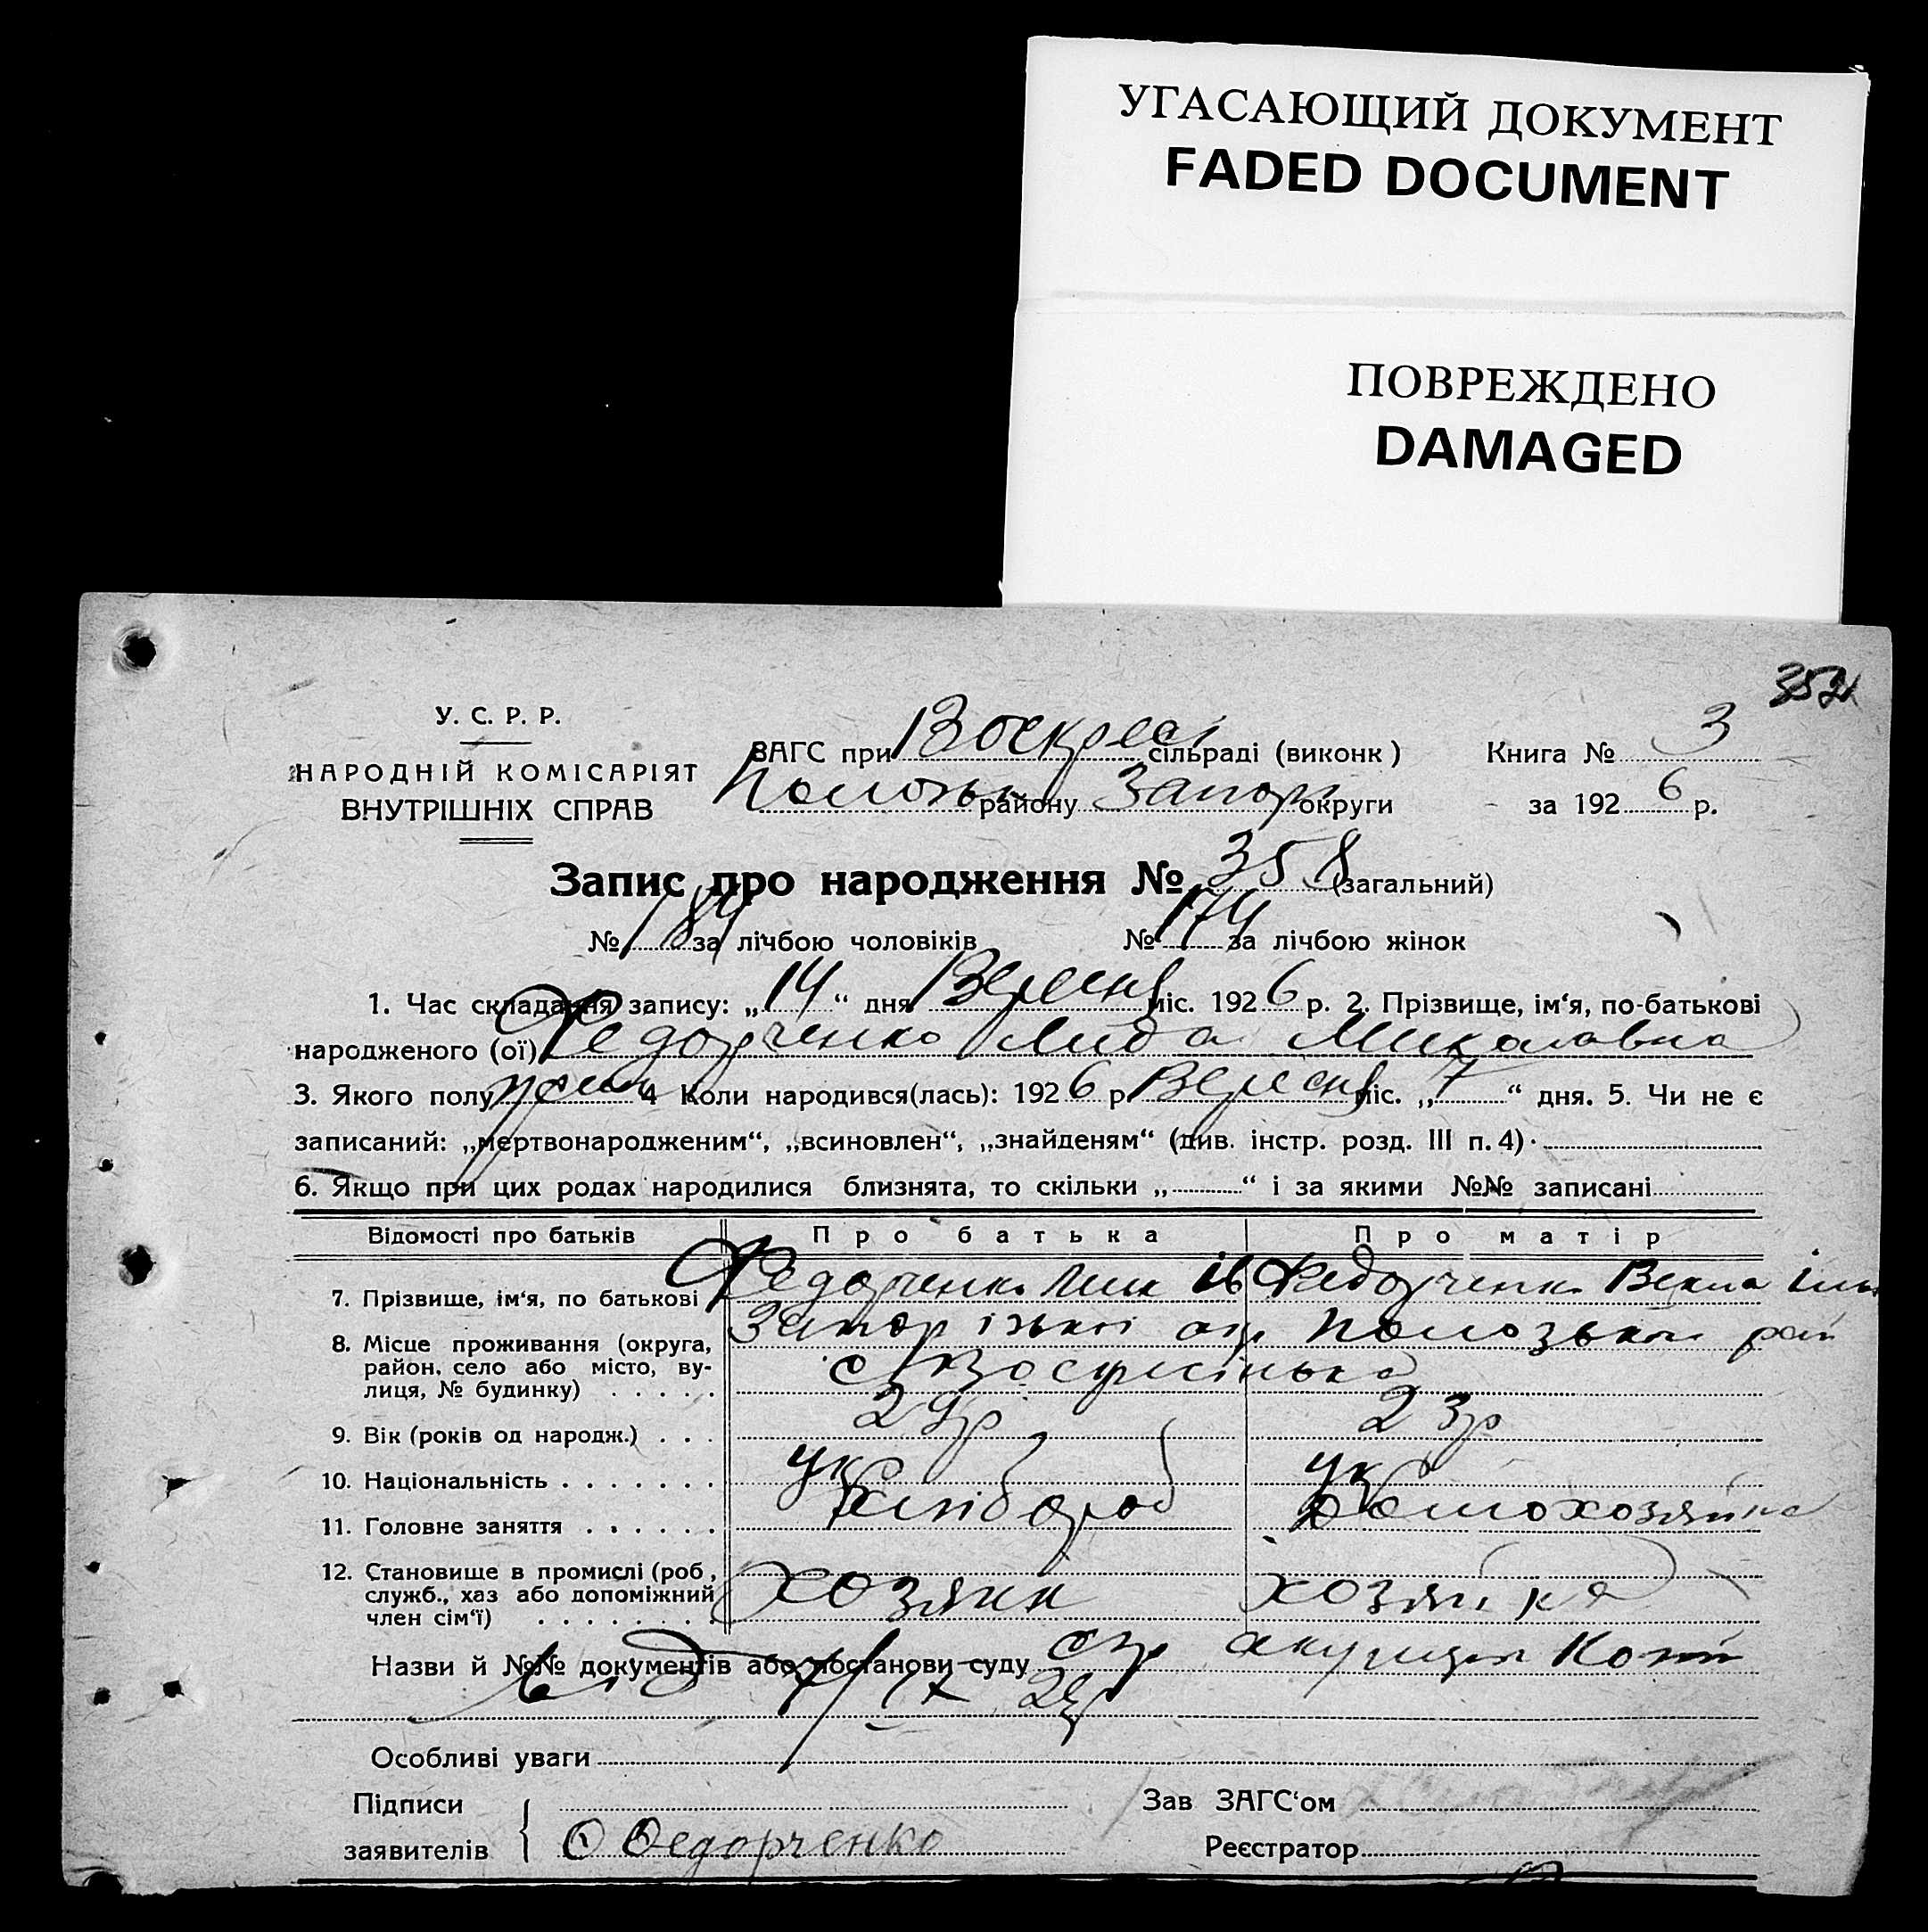 УГАСАЮЩИЙ ДОКУМЕНТ
FADED DOCUMENT
ПОВРЕЖДЕНО
DAMAGED
У. С. Р. Р.
НАРОДНІЙ КОМІСАРІЯТ
ВНУТРІШНІХ СПРАВ
ЗАГС при Воскресі сільраді (виконк) Книга № 3
району Запор округи за 1926 р.
Запис про народження № 358 (загальний)
№ 184 за лічбою чоловіків № 174 за лічбою жінок
1. Час складання запису: „14“ дня Вересня міс. 1926 р. 2. Прізвище, ім‘я, по-батькові
народженого (ої) Федорченко Лида Миколавна
3. Якого полу 4 Коли народився(лась): 1926 р Вересня міс. „7“ дня. 5. Чи не є
записаний: „мертвонародженим“, „всиновлен“, „знайденям“ (див. інстр. розд. III п. 4)
6. Якщо при цих родах народилися близнята, то скільки „ “ і за якими №№ записані
Відомості про батьків Про батька Про матір
7. Прізвище, ім‘я, по батькові Федорченко Мик Ів Федорченк Векла Іль
8. Місце проживання (округа, район, село або місто, вулиця, № будинку) Запорізькі окр Пологзької рай
с
9. Вік (років од народж.) 29р 23р
10. Національність укр укр
11. Головне заняття хлібороб домохозяйка
12. Становище в промислі (роб, служб., хаз або допоміжний член сім‘ї) хозяин хозяйка
Назви й №№ документів або постанови суду акушерки
від 7/IX 26р
Особливі уваги
Підписи
заявителів Федорченко
Зав ЗАГС‘ом
Реєстратор